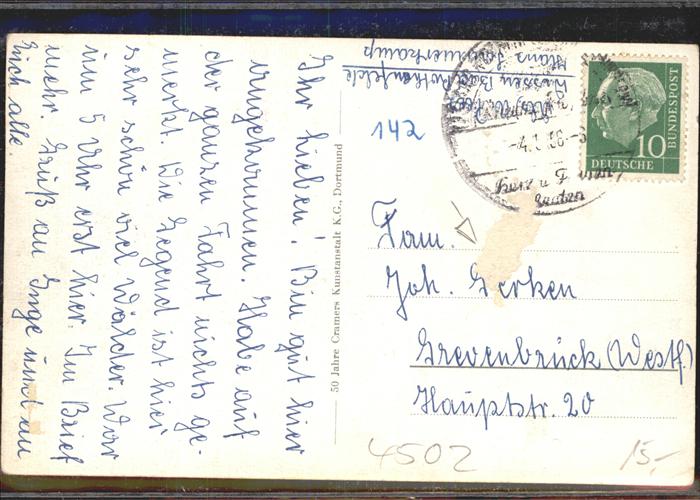 Ihr Lieben! Bin gut hier
angekommen. Habe auf
der ganzen Fahrt nichts ge-
merkt. Die Gegend ist hier
sehr schön viel Wälder. War
um 5 Uhr erst hier. Im Brief
mehr. Gruß an Inge und an
Euch alle.
50 Jahre Cramers Kunstanstalt K.G., Dortmund
Bad Rothenfelde
142
10
DEUTSCHE
BUNDESPOST
Fam.
Joh. Gerken
Grevenbrück (Westf.)
Hauptstr. 20
4502
15,-